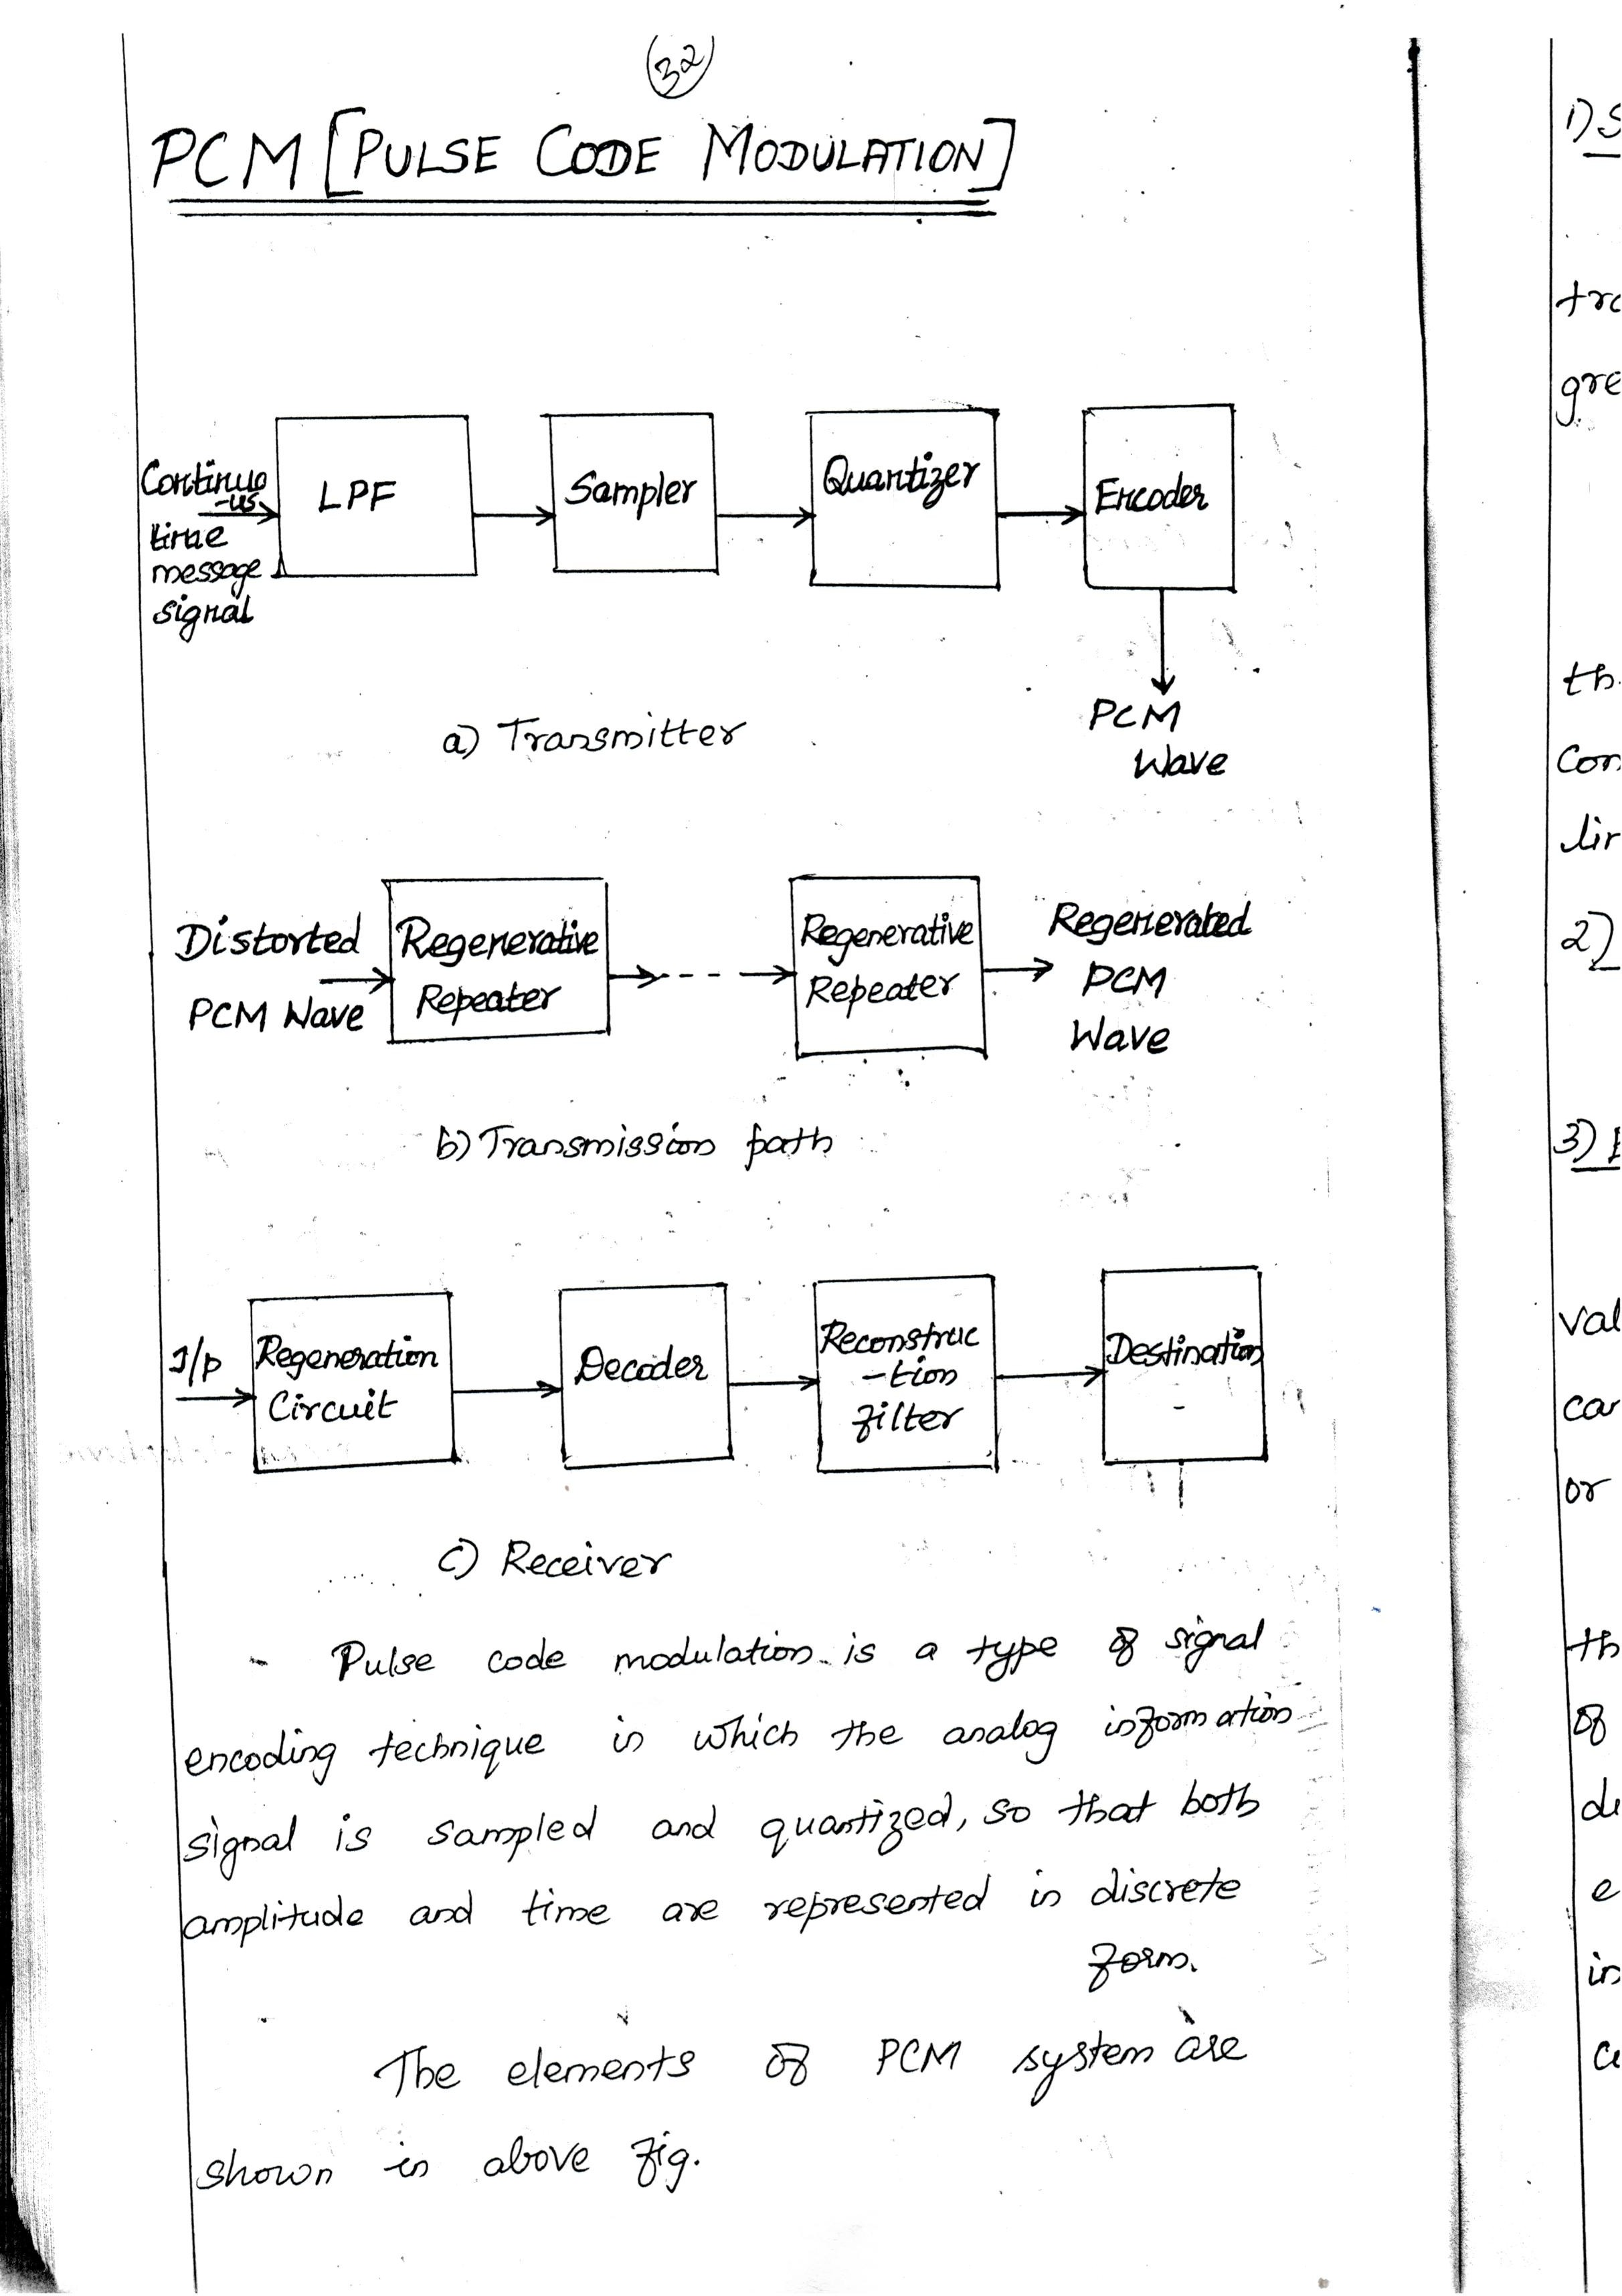 32
PCM [PULSE CODE MODULATION]
Continuo
-us
time
message
signal
LPF
Sampler
Quantizer
Encoder
PCM
Wave
a) Transmitter
Distorted
PCM Wave
Regenerative
Repeater
Regenerative
Repeater
Regenerated
PCM
Wave
b) Transmission path
I/p
Regeneration
Circuit
Decoder
Reconstruc
-tion
filter
Destination
c) Receiver
Pulse code modulation is a type of signal
encoding technique in which the analog information
signal is sampled and quantized, so that both
amplitude and time are represented in discrete
form.
The elements of PCM system are
shown in above fig.
1) S
tra
gre
th
Con
lir
2)
3)
val
car
or
th
of
de
e
in